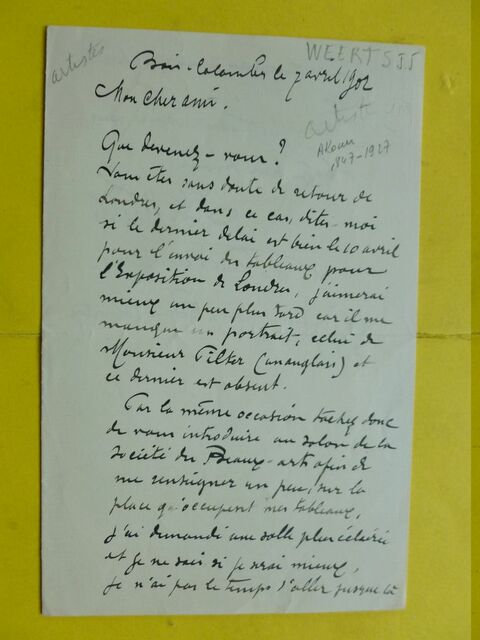 artistes
WEERTS JJ
Bois-Colombes le 7 avril 1902
artiste
Mon cher ami.
1847-1927
Que devenez-vous?
Vous êtes sans doute de retour de
Londres, et dans ce cas, dites-moi
si le dernier délai est bien le 10 avril
pour l'envoi des tableaux pour
l'Exposition de Londres, j'aimerai
mieux un peu plus tard car il me
manque un portrait, celui de
Monsieur Filter (un anglais) et
ce dernier est absent.
Par la même occasion tachez donc
de vous introduire au salon de la
Société des Beaux-arts afin de
me renseigner un peu, sur la
place qu'occupent mes tableaux,
j'ai demandé une salle plus éclairée
et je ne sais si je serai mieux,
Je n'ai pas le temps d'aller jusque là